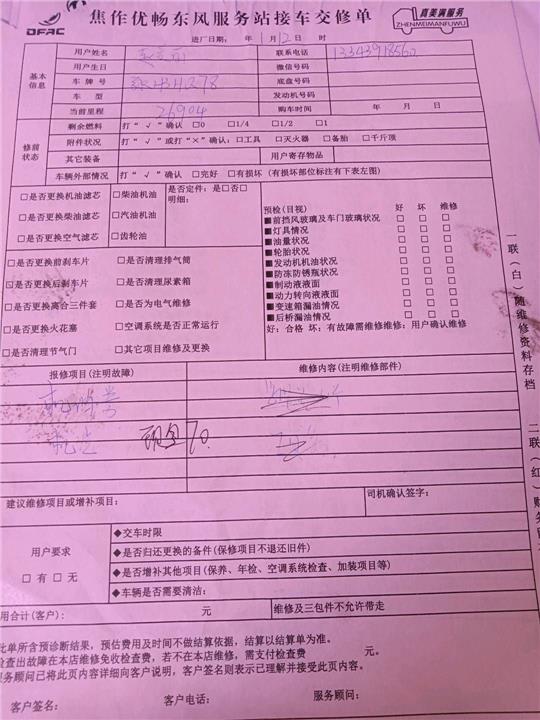 DFAC 焦作优畅东风服务站接车交修单 真美满服务 ZHENMEIMANFUWU
进厂日期: 年 1月12日 时
基本信息 用户姓名 联系电话 13343918560
用户生日 微信号码
车牌号 底盘号码
车型 发动机号码
当前里程 26904 购车时间 年 月 日
修前状态 剩余燃料 打“√”确认 □0 □1/4 □1/2 □1
附件状况 打“√”或打“×”确认:□工具 □灭火器 □备胎 □千斤顶
其它装备 用户寄存物品
车辆外部情况 打“√”确认 □完好 □有损坏(有损坏部位标注有下表左图)
□是否更换机油滤芯 □柴油机油 是否定件:是□否□
明细:
□是否更换柴油滤芯 □汽油机油
□是否更换空气滤芯 □齿轮油
□是否更换前刹车片 □是否清理排气筒
□是否更换后刹车片 □是否清理尿素箱
□是否更换离合三件套 □是否为电气维修
□是否更换火花塞 □空调系统是否正常运行
□是否清理节气门 □其它项目维修及更换
预检(目视) 好 坏 维修
■前挡风玻璃及车门玻璃状况 □ □ □
■灯具情况 □ □ □
■油量状况 □ □ □
■轮胎状况 □ □ □
■发动机机油状况 □ □ □
■防冻防锈瓶状况 □ □ □
■制动液液面 □ □ □
■动力转向液液面 □ □ □
■变速箱漏油情况 □ □ □
■后桥漏油情况 □ □ □
好:合格 坏:有故障需维修维修:用户确认维修
报修项目(注明故障) 维修内容(注明维修部件)
现金 70.
建议维修项目或增补项目: 司机确认签字:
用户要求
□有 □无
◆交车时限
◆是否归还更换的备件(保修项目不退还旧件)
◆是否增补其他项目(保养、年检、空调系统检查、加装项目等)
◆车辆是否需要清洁:
用合计(客户): 元 维修及三包件不允许带走
此单所含预诊断结果,预估费用及时间不做结算依据,结算以结算单为准。
检查出故障在本店维修免收检查费,若不在本店维修,需支付检查费 元。
服务顾问已将此页内容详细向客户说明,客户签名则表示已理解并接受此页内容。
客户签名: 客户电话: 服务顾问:
一联(白)随维修资料存档
二联(红)